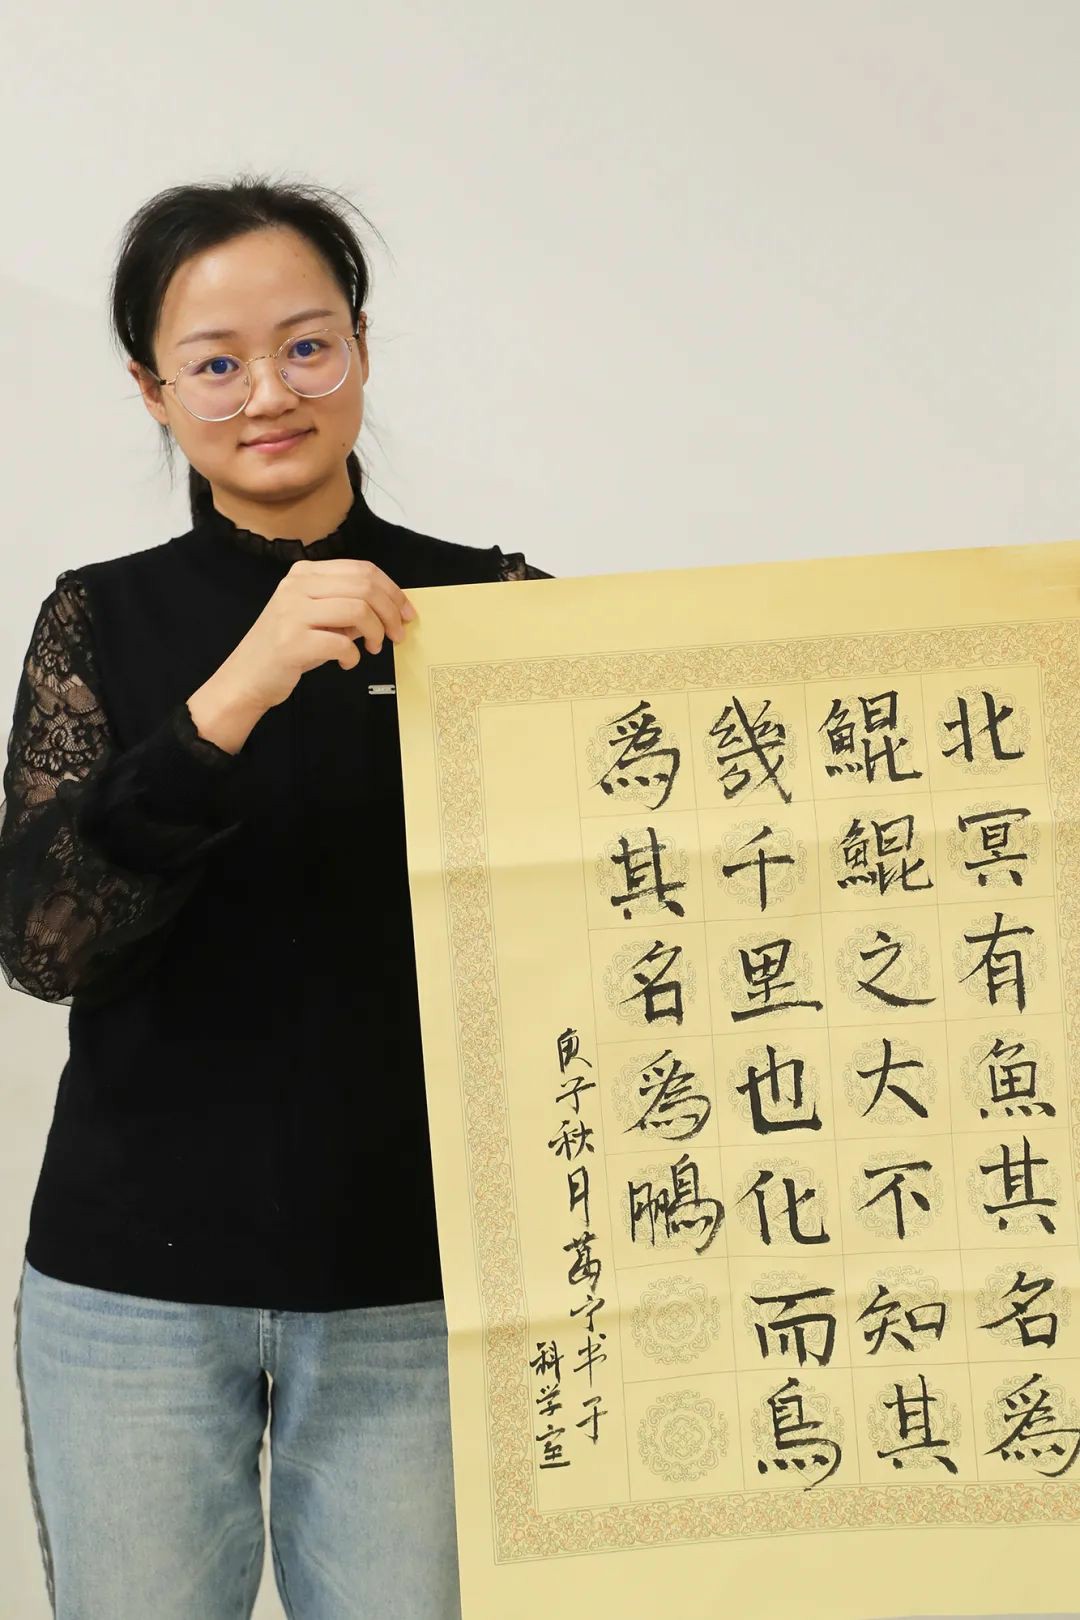 北冥有魚其名爲
鯤鯤之大不知其
幾千里也化而鳥
爲其名爲鵬
庚子秋月宁书于
科学室